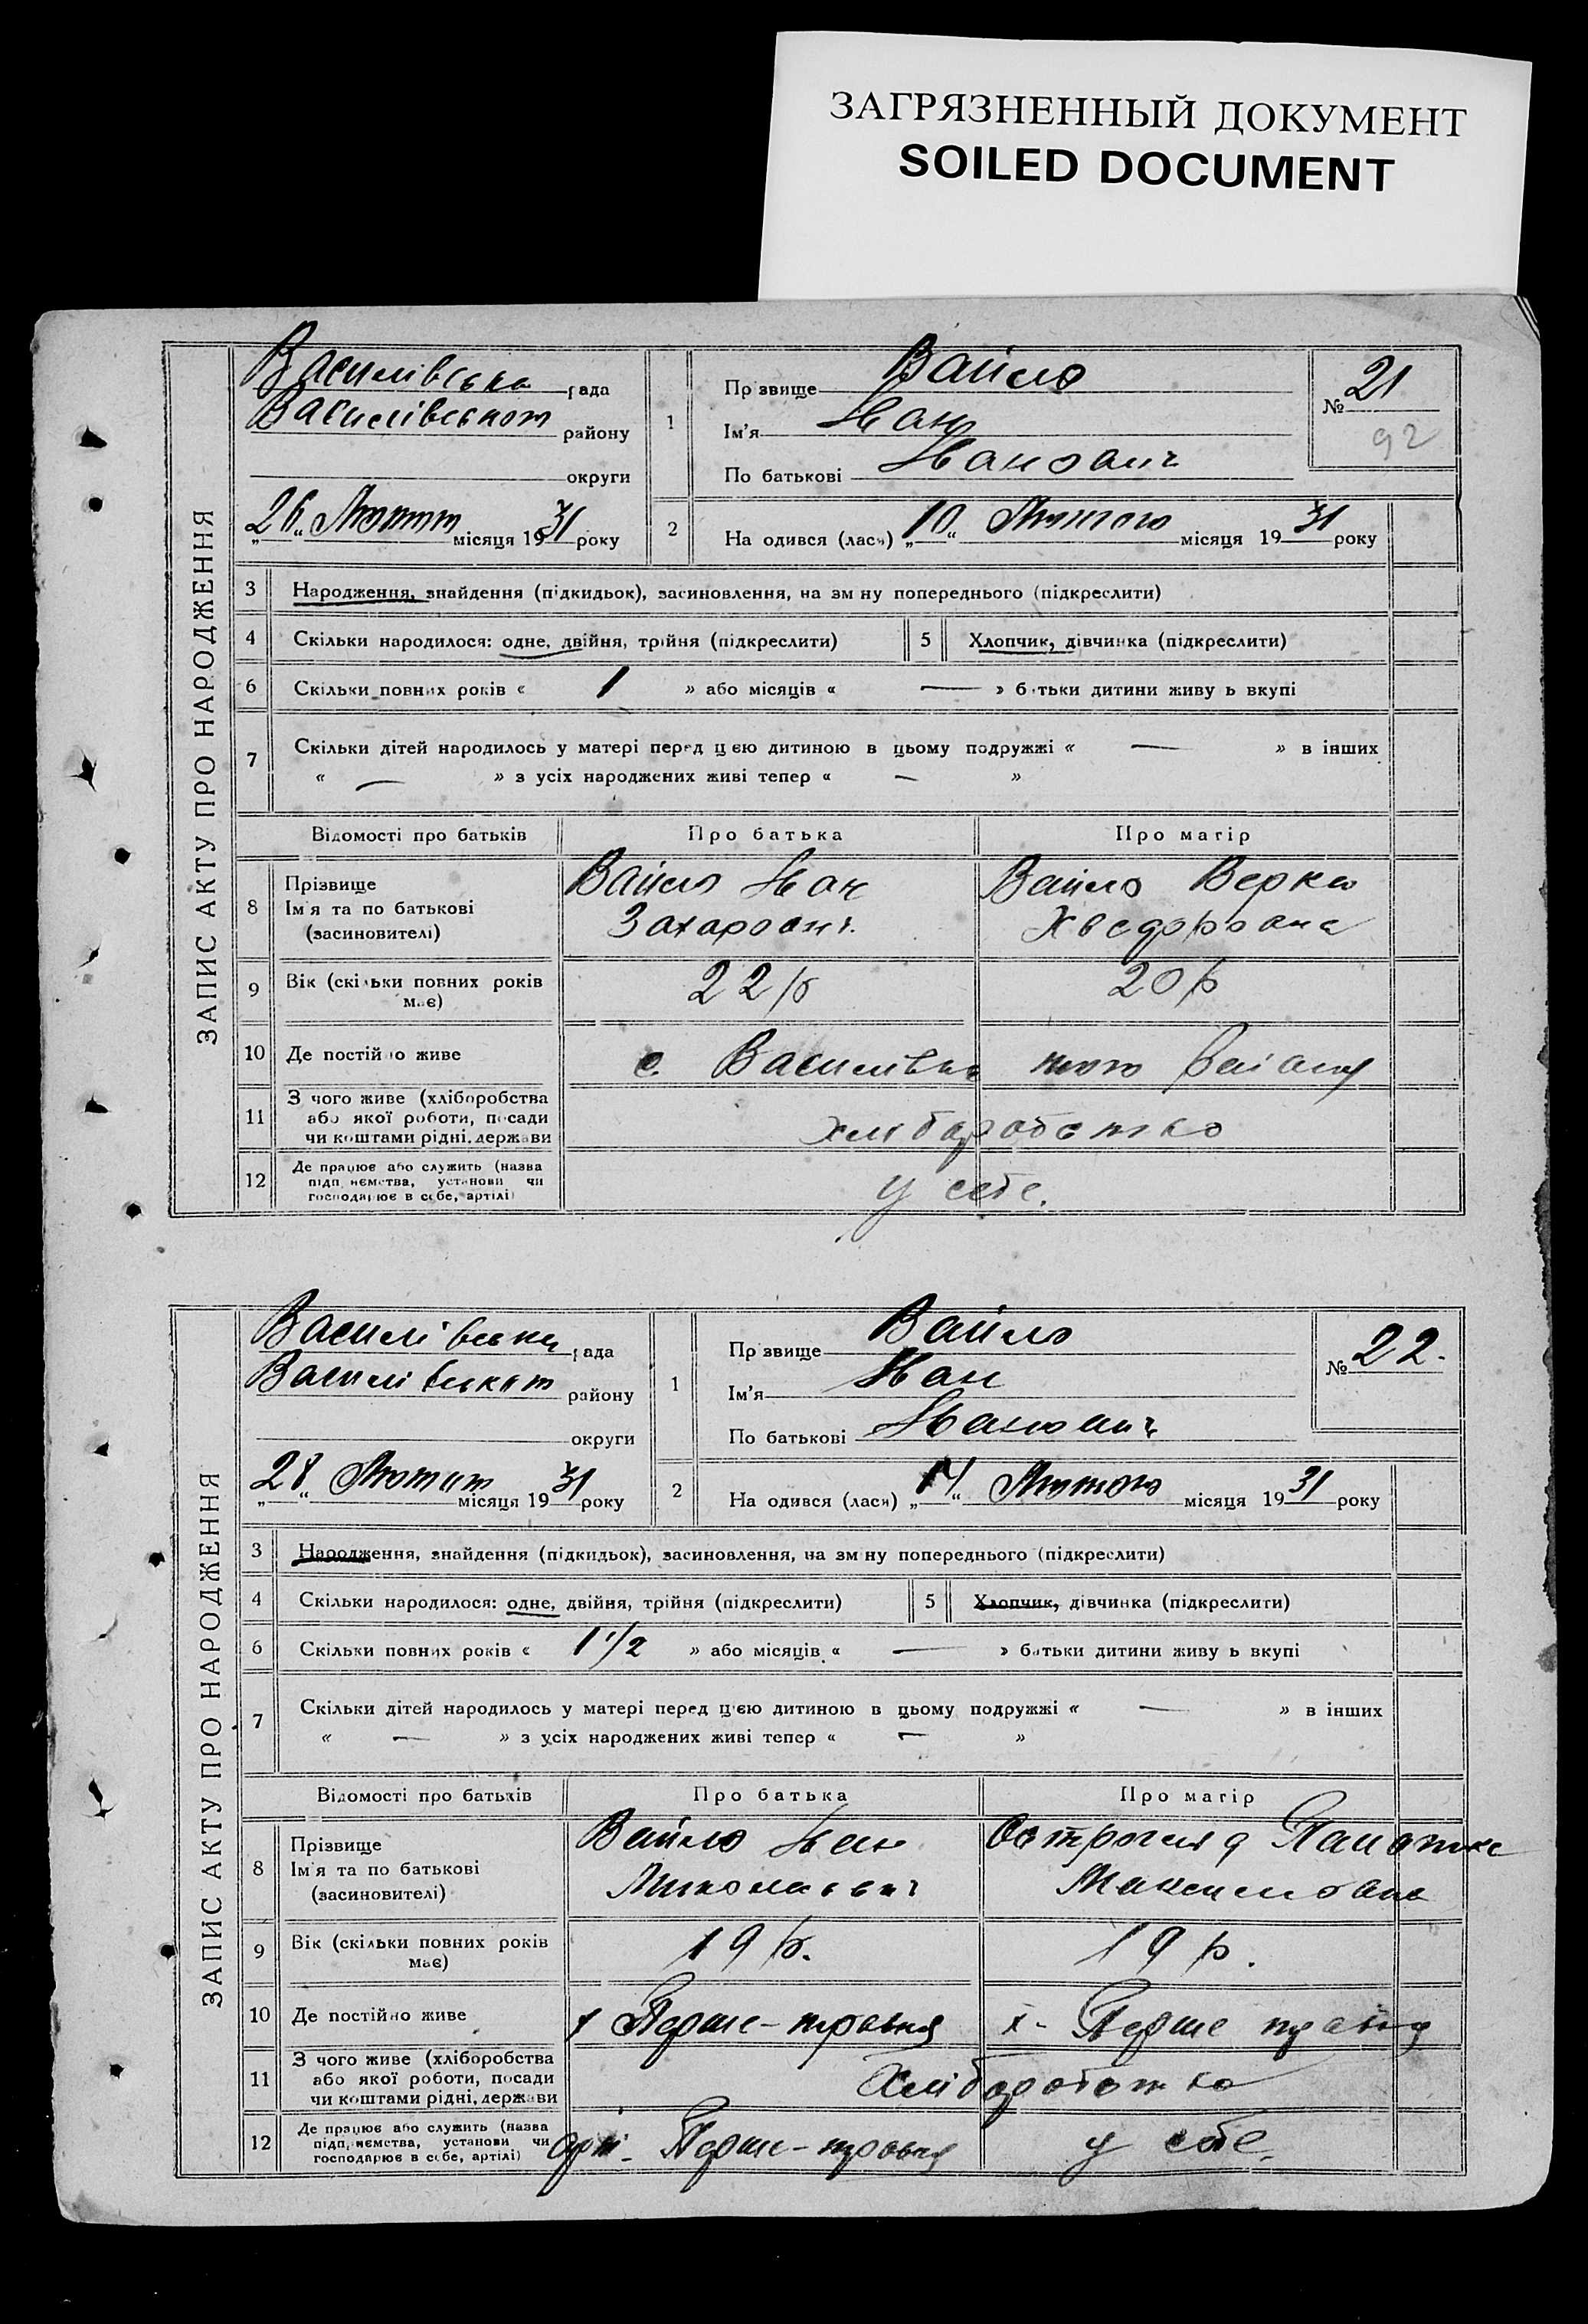 ЗАГРЯЗНЕННЫЙ ДОКУМЕНТ
SOILED DOCUMENT
ЗАПИС АКТУ ПРО НАРОДЖЕННЯ
Василівська рада
Василівського району
округи
26 Лютого місяця 1931 року
1
Прізвище Вайло
Ім'я Іван
По батькові Іванович
№ 21
92
2
На одився (лася) „10“ Лютого місяця 1931 року
3 Народження, знайдення (підкидьок), засиновлення, на зм ну попереднього (підкреслити)
4 Скільки народилося: одне, двійня, трійня (підкреслити) 5 Хлопчик, дівчинка (підкреслити)
6 Скільки повних років « 1 » або місяців « — » батьки дитини живу ь вкупі
7 Скільки дітей народилось у матері перед цією дитиною в цьому подружжі « — » в інших
« — » з усіх народжених живі тепер « — »
Відомості про батьків Про батька Про матір
8 Прізвище Ім'я та по батькові (засиновителі)
Вайло Іван Захарович
Вайло Верка Хведоровна
9 Вік (скільки повних років має) 22 р 20 р
10 Де постійно живе с. Василівка
11 З чого живе (хліборобства або якої роботи, посади чи коштами рідні, держави
хліборобство
12 Де працює або служить (назва підприємства, установи чи господарює в себе, артілі)
у себе.
ЗАПИС АКТУ ПРО НАРОДЖЕННЯ
Василівська рада
Василівського району
округи
28 Лютого місяця 1931 року
1
Прізвище Вайло
Ім'я Іван
По батькові Іванович
№ 22.
2
На одився (лася) „14“ Лютого місяця 1931 року
3 Народження, знайдення (підкидьок), засиновлення, на зм ну попереднього (підкреслити)
4 Скільки народилося: одне, двійня, трійня (підкреслити) 5 Хлопчик, дівчинка (підкреслити)
6 Скільки повних років « 1 1/2 » або місяців « — » батьки дитини живу ь вкупі
7 Скільки дітей народилось у матері перед цією дитиною в цьому подружжі « — » в інших
« — » з усіх народжених живі тепер « — »
Відомості про батьків Про батька Про матір
8 Прізвище Ім'я та по батькові (засиновителі)
Вайло Іван Миколаевич
Острогляд Максимовна
9 Вік (скільки повних років має) 19 р. 19 р.
10 Де постійно живе х Перше-травня х- Перше травня
11 З чого живе (хліборобства або якої роботи, посади чи коштами рідні, держави
Хліборобство
12 Де працює або служить (назва підприємства, установи чи господарює в себе, артілі)
арт. Перше-травня у себе.